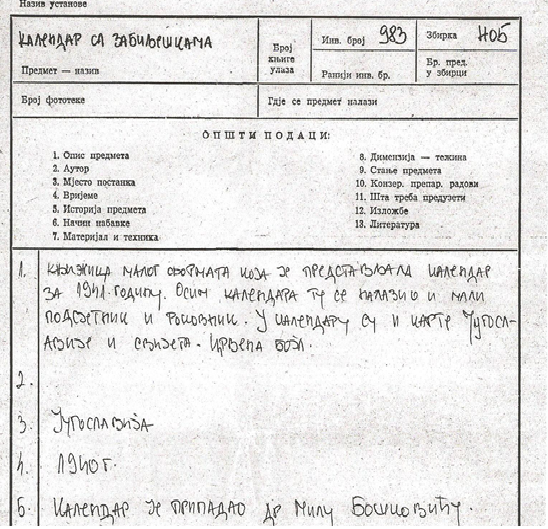 Назив установе
КАЛЕНДАР СА ЗАБИЉЕШКАМА
Предмет — назив
Број књиге улаза
Инв. број 983
Ранији инв. бр.
Збирка НОБ
Бр. пред. у збирци
Број фототеке
Гдје се предмет налази
ОПШТИ ПОДАЦИ:
1. Опис предмета
2. Аутор
3. Мјесто постанка
4. Вријеме
5. Историја предмета
6. Начин набавке
7. Материјал и техника
8. Димензија — тежина
9. Стање предмета
10. Конзер. препар. радови
11. Шта треба предузети
12. Изложбе
13. Литература
1. КЊИЖИЦА МАЛОГ ФОРМАТА КОЈА ЈЕ ПРЕДСТАВЉАЛА КАЛЕНДАР
ЗА 1941. ГОДИНУ. ОСИМ КАЛЕНДАРА ТУ СЕ НАЛАЗИО И МАЛИ
ПОДСЈЕТНИК И РОКОВНИК. У КАЛЕНДАРУ СУ И КАРТЕ ЈУГОСЛ-
АВИЈЕ И СВИЈЕТА. ЦРВЕНА БОЈА.
2.
3. ЈУГОСЛАВИЈА
4. 1940 Г.
5. КАЛЕНДАР ЈЕ ПРИПАДАО ДР МИЛУ БОШКОВИЋУ.